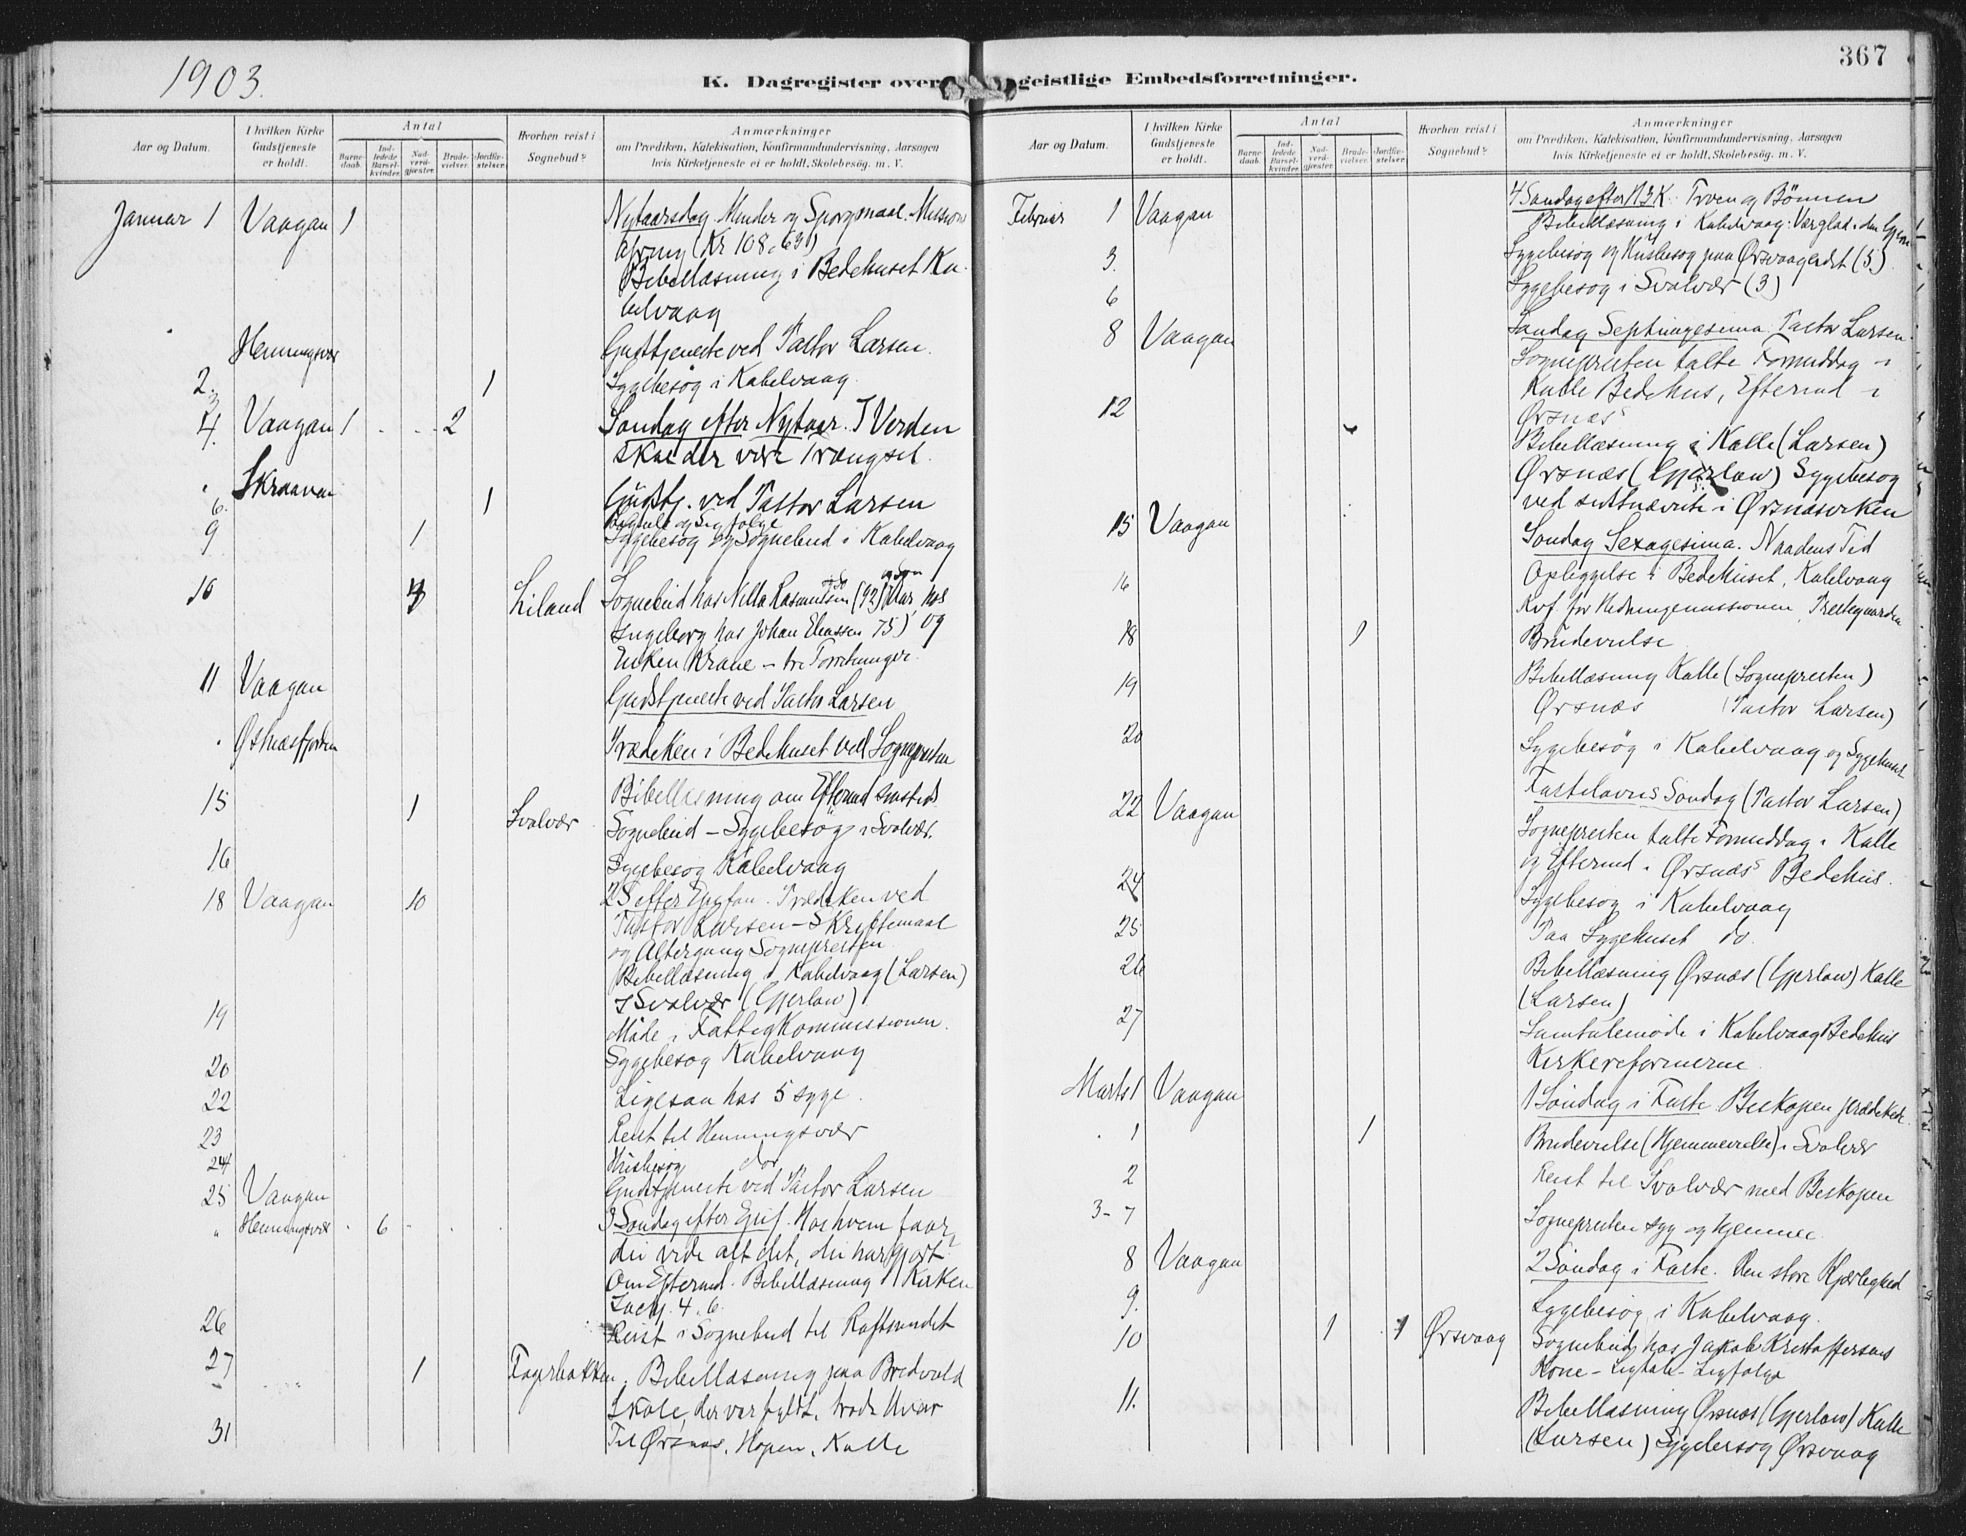 1903.
K. Dagregister over geistlige Embedsforretninger.
367
Aar og Datum.
I hvilken Kirke Gudstjeneste er holdt.
Antal
Barnedaab.
Indledede Barselkvinder.
Nadverdgjæster.
Brudevielser.
Jordfæstelser.
Hvorhen reist i Sognebud?
Anmærkninger
om Prædiken, Katekisation, Konfirmandundervisning, Aarsagen
hvis Kirketjeneste ei er holdt, Skolebesög. m. V.
Januar 1 Vaagan 1 Nytaarsdag. Minder og Spørgsmaal. Missions
(Kr 108,63)
Bibellæsning i Bedehuset Ka
belvaag
Henningsvær Gudstjeneste ved Pastor Larsen.
2. 1 Sygebesøg i Kabelvaag.
4. Vaagan 1 2 Søndag efter Nytaar. I Verden
skal der være Trængsel.
Skraaven Gudstj. ved Pastor Larsen
6. 1 Ligtale og Ligfølge
9 1 Sygebesøg og Sognebud i Kabelvaag
10 Liland Sognebud hos Nills Rasmussen (92)
Ingeborg hos Johan Eliassen 75) og
Enken Krane – tre Forretninger.
11 Vaagan Gudstjeneste ved Pastor Larsen
Østnæsfjorden Prædiken i Bedehuset ved Sognepresten
Bibellæsning om Eftermd sammesteds
15 1 Svolvær Sognebud – Sygebesøg i Svolvær.
16 Sygebesøg Kabelvaag
18 Vaagan 10 2 S efter Epifan. Prædiken ved
Pastor Larsen – Skriftemaal
og Altergang Sognepresten.
Bibellæsning i Kabelvaag (Larsen)
I Svolvær (Gjerløw)
19 Møde i Fattigkommissionen.
20 Sygebesøg Kabelvaag
22 Ligesaa hos 5 syge.
23 Reist til Henningsvær
24 Husbesøg do
25 Vaagan Gudstjeneste ved Pastor Larsen
" Henningsvær 6 3 Søndag efter Epif. Hos hvem faar
du vide alt det, du har gjort?
Om Eftermd. Bibellæsning i Kirken
Zach. 4. 6.
26 Reist i Sognebud til Raftsundet
27 1 Fagerbakken. Bibellæsning paa Bredvold
Skole, der var fyldt, trods Uveir
31 Til Ørsnæs, Hopen, Kalle
Aar og Datum.
I hvilken Kirke Gudstjeneste er holdt.
Antal
Barnedaab.
Indledede Barselkvinder.
Nadverdgjæster.
Brudevielser.
Jordfæstelser.
Hvorhen reist i Sognebud?
Anmærkninger
om Prædiken, Katekisation, Konfirmandundervisning, Aarsagen
hvis Kirketjeneste ei er holdt, Skolebesög. m. V.
Februar 1 Vaagan 4 Søndag efter H3K. Troen og Bønnen
Bibellæsning i Kabelvaag:
3. Sygebesøg og Husbesøg paa Ørsvaageidet (5)
6 Sygebesøg i Svolvær (3)
8 Vaagan Søndag Septuagesima. Pastor Larsen.
Sognepresten talte Formiddag i
Kalle Bedehus, Eftermd i
Ørsnæs
12 Bibellæsning i Kalle (Larsen)
Ørsnæs (Gjerløw) Sygebesøg
ved sidstnævnte i Ørsnæsviken
15 Vaagan Søndag Sexagesima. Naadens Tid
Opbyggelse i Bedehuset, Kabelvaag
16 Kvf. for Hedningemissionen, Prestegaarden
18 1 Brudevielse
19 Bibellæsning Kalle (Sognepresten)
Ørsnæs (Pastor Larsen)
20 Sygebesøg i Kabelvaag og Sygehuset
22 Vaagan Fastelavns Søndag (Pastor Larsen)
Sognepresten talte Formiddag i Kalle
og Eftermd. i Ørsnæs Bedehus.
24 Sygebesøg i Kabelvaag
25 Paa Sygehuset do.
26 Bibellæsning Ørsnæs (Gjerløw) Kalle
(Larsen)
27 Samtalemøde i Kabelvaag Bedehus
Kirkereformerne
Marts 1 Vaagan 1 Søndag i Faste Biskopen prædikede.
1 1 Brudevielse (Hjemmevielse) i Svolvær
2 Reist til Svolvær med Biskopen
3–7 Sognepresten syg og hjemme.
8 Vaagan 2 Søndag i Faste. Den store Kjærlighed
9. Sygebesøg i Kabelvaag.
10 1 1 Ørsvaag Sognebud hos Jakob Kristoffersens
Kone – Ligtale – Ligfølge
11. Bibellæsning Ørsnæs (Gjerløw) Kalle
(Larsen) Sygebesøg Ørsvaag